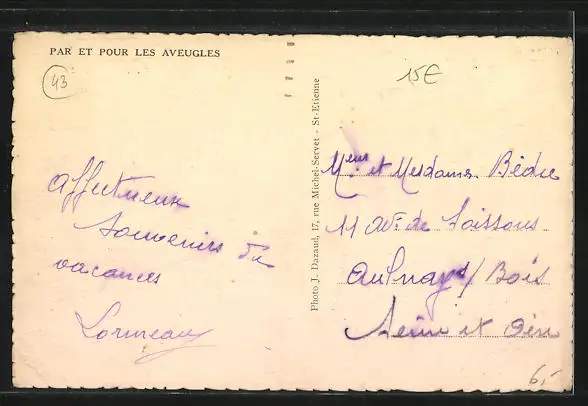 PAR ET POUR LES AVEUGLES
43
15€
Affectueux
souvenirs de
vacances
Lormeau
Photo J. Dazaud, 17, rue Michel-Servet - St-Etienne
Meur et Mesdames Bédu
11 Av. de Soissons
Aulnay s/ Bois
Seine et Oise
6,-